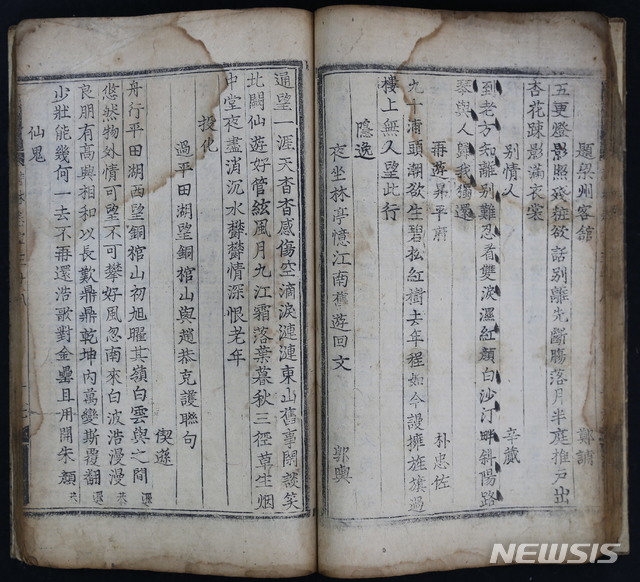 題梁州客舘 鄭誧
五更燈影照殘粧欲話別離先斷膓落月半庭推戶出
杏花踈影滿衣裳
別情人 辛蕆
到老方知離別難忍看雙淚濕紅顔白沙汀畔斜陽路
與人歸我獨還
再遊昇平府 朴忠佐
九十浦頭潮欲生碧松紅樹去年程如今謾擁旌旗過
樓上無人望此行
隱逸
夜坐林亭憶江南舊遊回文 郭輿
遥望一涯天杳杳感傷空滴淚漣漣東山舊事閒談笑
北闕仙遊好管絃風月九江霜落葉暮秋三徑草生烟
中堂夜盡消沉水欝欝情深恨老年
投化
過平田湖望銅棺山與趙恭克護聯句 偰遜
舟行平田湖西望銅棺山初旭曜其嶺白雲與之間 遜
悠然物外情可望不可攀好風忽南來白波浩漫漫 恭
良朋有高興相和以長歎鼎鼎乾坤內萬變斯覆翻 遜
少壯能幾何一去不再還浩歌對金罍且用開朱顔 恭
仙鬼
NEWSIS